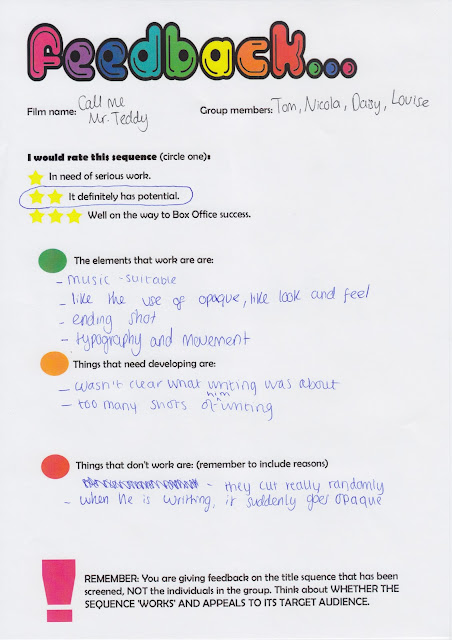 Feedback...
Film name: Call me
Mr. Teddy
Group members: Tom, Nicola, Daisy, Louise
I would rate this sequence (circle one):
In need of serious work.
It definitely has potential.
Well on the way to Box Office success.
The elements that work are are:
- music - suitable
- like the use of opaque, like look and feel
- ending shot
- typography and movement
Things that need developing are:
- wasn't clear what writing was about
- too many shots of him writing
Things that don't work are: (remember to include reasons)
- they cut really randomly
- when he is writing, it suddenly goes opaque
! REMEMBER: You are giving feedback on the title squence that has been
screened, NOT the individuals in the group. Think about WHETHER THE
SEQUENCE 'WORKS' AND APPEALS TO ITS TARGET AUDIENCE.